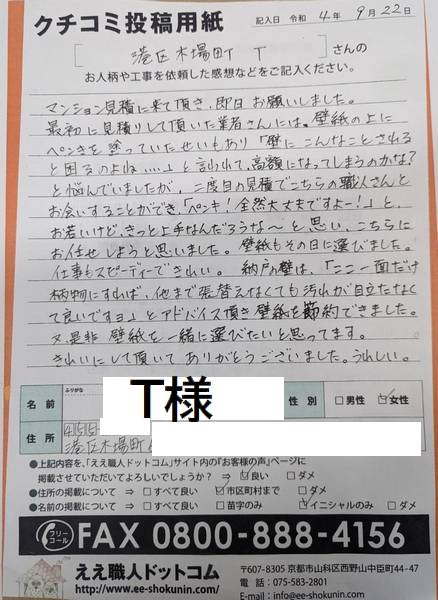 クチコミ投稿用紙
記入日 令和 4年 9月22日
[ 港区木場町 T ]さんの
お人柄や工事を依頼した感想などをご記入ください。
マンション見積に来て頂き、即日お願いしました。
最初に見積りして頂いた業者さんには、壁紙の上に
ペンキを塗っていたせいもあり「壁にこんなことされる
と困るのよね……」と言われて、高額になってしまうのかな?
と悩んでいましたが、二度目の見積でこちらの職人さんと
お会いすることができ、「ペンキ!全然大丈夫ですよー!」と、
お若いけど、きっと上手なんだろうな〜と思い、こちらに
お任せしようと思いました。壁紙もその日に選びました。
仕事もスピーディーできれい。納戸の壁は、「ここ一面だけ
柄物にすれば、他まで張替えなくても汚れが目立たなく
て良いですヨ」とアドバイス頂き壁紙を節約できました。
又、是非 壁紙を一緒に選びたいと思ってます。
きれいにして頂いてありがとうございました。うれしい。
ふりがな
名前 T様 性別 □男性 ☑女性
住所 455
港区木場町
●上記内容を、「ええ職人ドットコム」サイト内の『お客様の声』ページに
掲載させていただいてよろしいでしょうか? ⇒ ☑良い □ダメ
●住所の掲載について ⇒ □すべて良い ☑市区町村まで □ダメ
●名前の掲載について ⇒ □すべて良い □苗字のみ ☑イニシャルのみ □ダメ
フリーコール FAX 0800-888-4156
ええ職人ドットコム
http://www.ee-shokunin.com/
〒607-8305 京都市山科区西野山中臣町44-47
電話:075-583-2801
E-mail:info@ee-shokunin.com